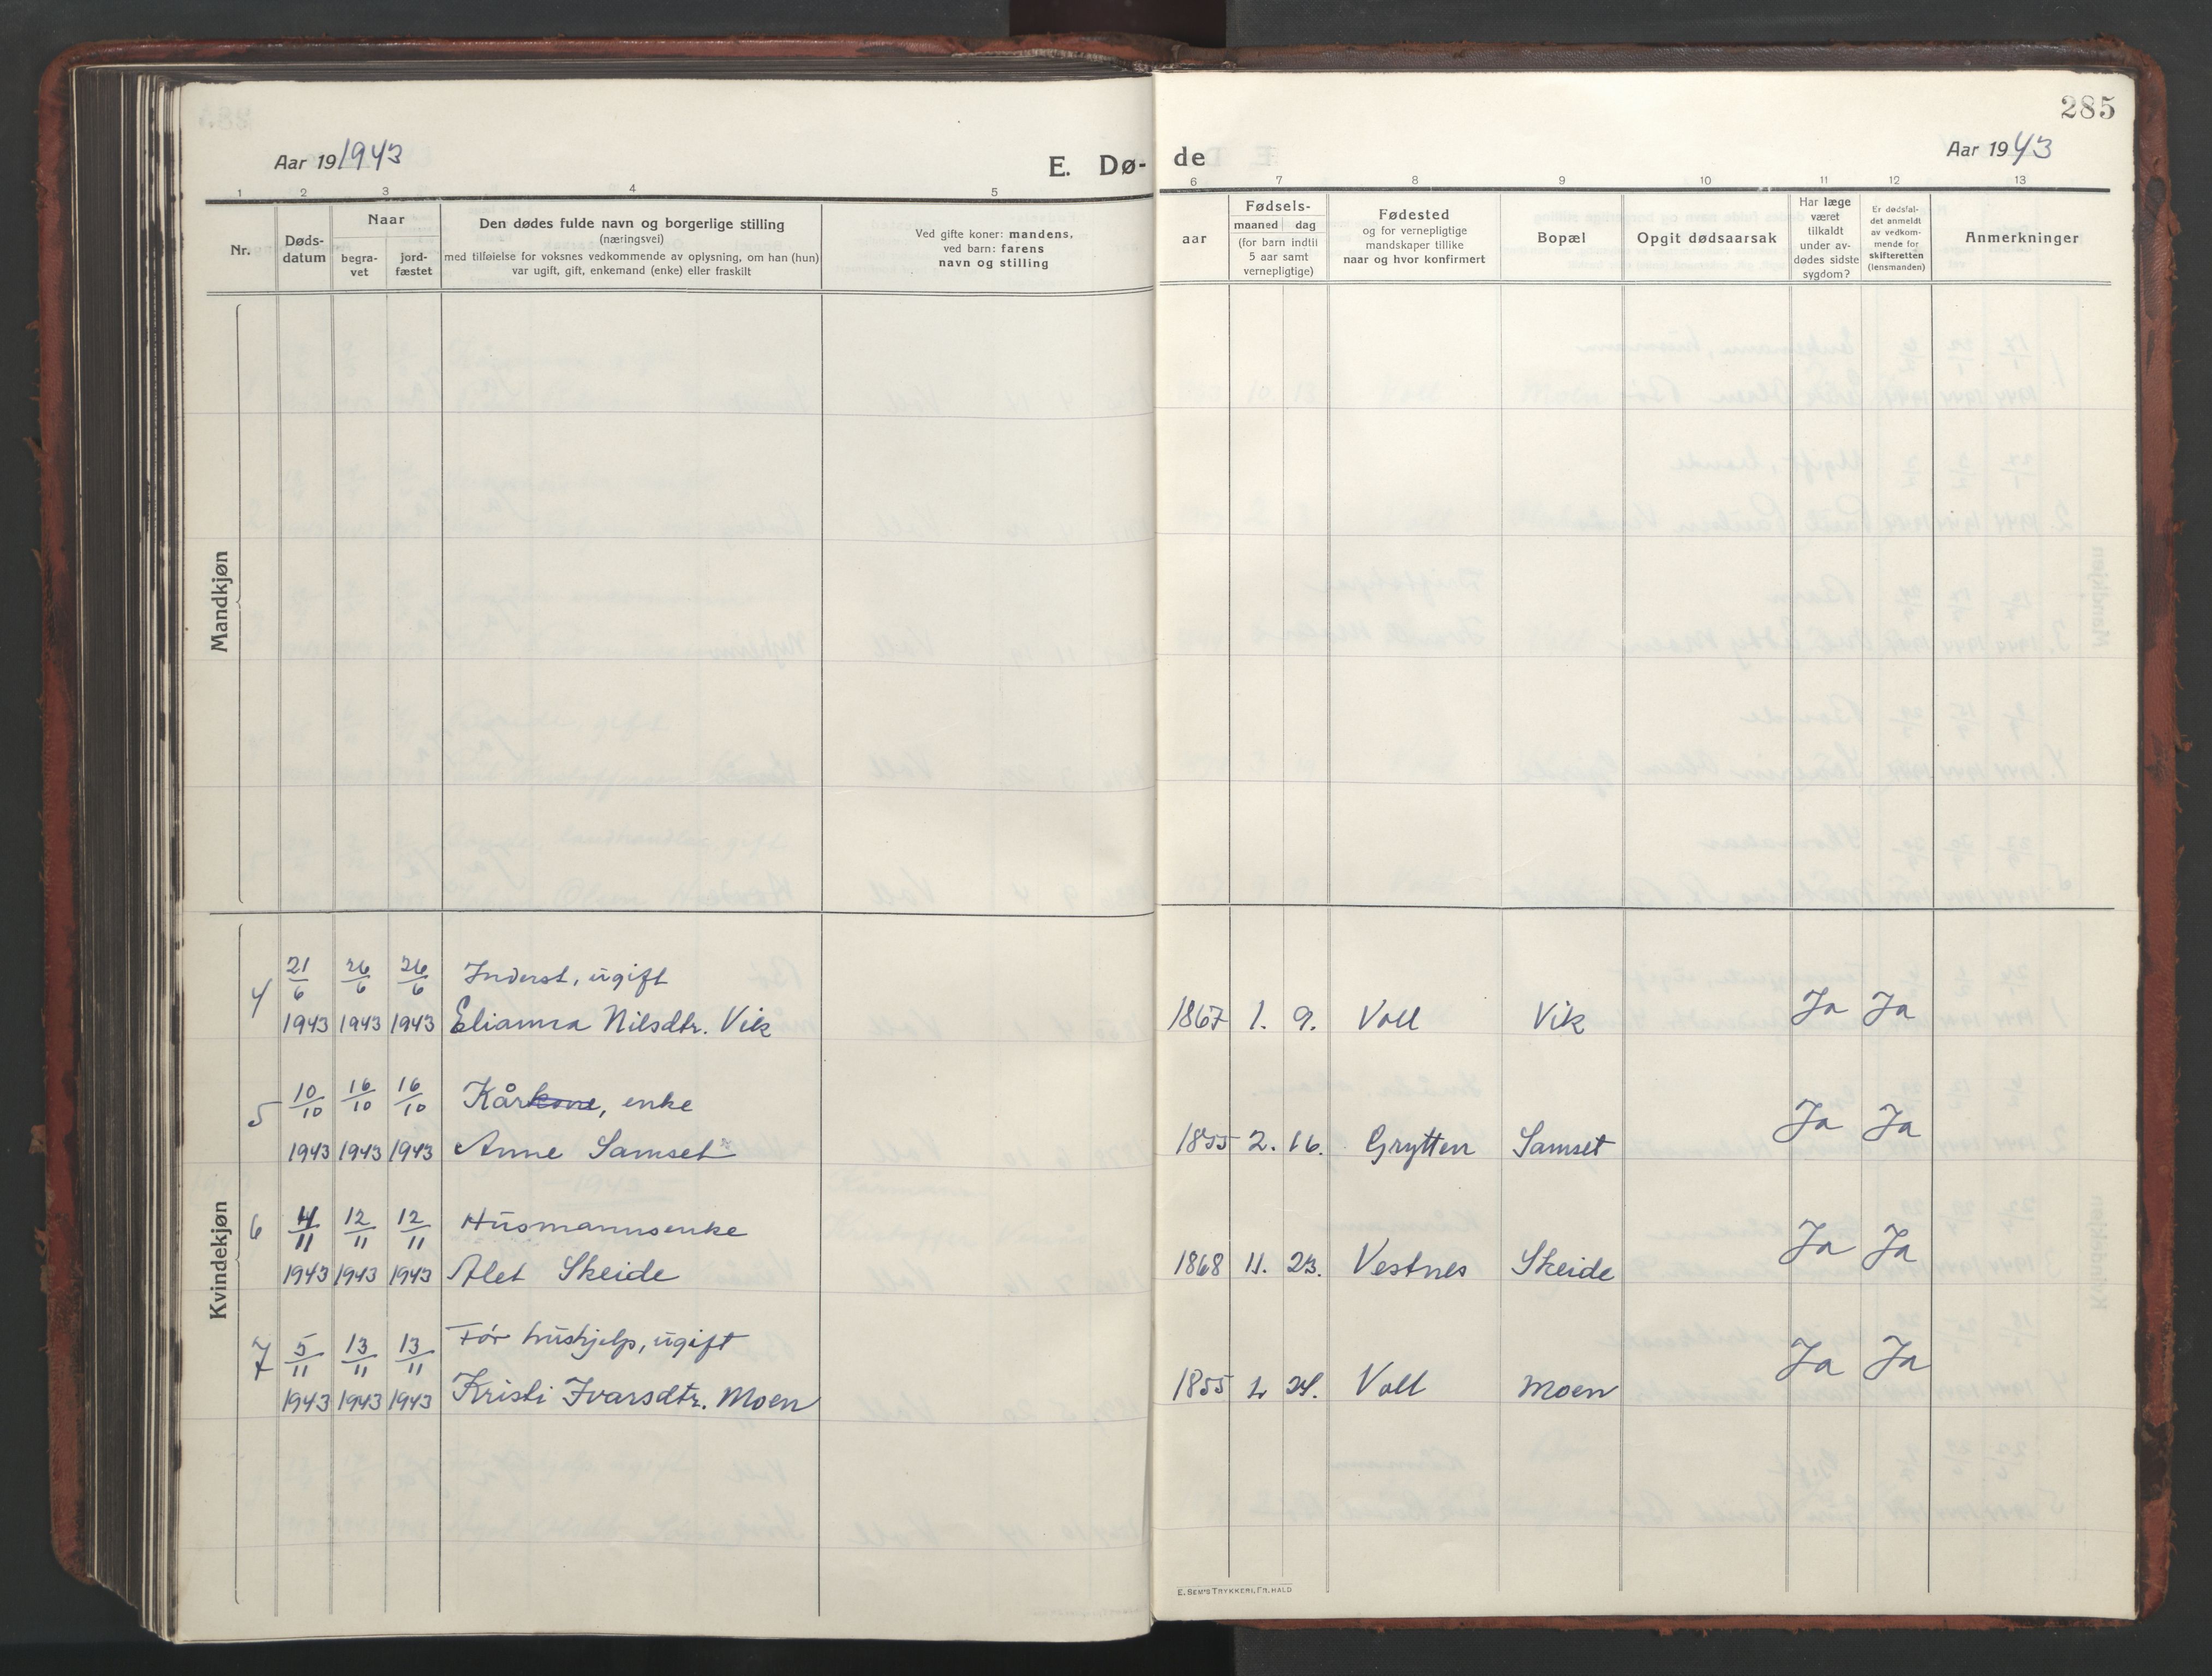 285
Aar 19 1943
E. Dø- de
Aar 19 43
1 2 3 4 5 6 7 8 9 10 11 12 13
Nr.
Døds-
datum
Naar
begra-
vet
jord-
fæstet
Den dødes fulde navn og borgerlige stilling
(næringsvei)
med tilføielse for voksnes vedkommende av oplysning, om han (hun)
var ugift, gift, enkemand (enke) eller fraskilt
Ved gifte koner: mandens,
ved barn: farens
navn og stilling
aar
Fødsels-
maaned dag
(for barn indtil
5 aar samt
vernepligtige)
Fødested
og for vernepligtige
mandskaper tillike
naar og hvor konfirmert
Bopæl
Opgit dødsaarsak
Har læge
været
tilkaldt
under av-
dødes sidste
sygdom?
Er dødsfal-
det anmeldt
av vedkom-
mende for
skifteretten
(lensmanden)
Anmerkninger
Mandkjøn
Kvindekjøn
4 21/6 26/6 26/6 Inderst, ugift
1943 1943 1943 Elianna Nilsdtr. Vik 1867 1. 9. Voll Vik Ja Ja
5 10/10 16/10 16/10 Kårkone, enke
1943 1943 1943 Anne Samset 1855 2. 16. Grytten Samset Ja Ja
6 4/11 12/11 12/11 Husmannsenke
1943 1943 1943 Alet Skeide 1868 11. 23. Vestnes Skeide Ja Ja
7 5/11 13/11 13/11 Før hushjelp, ugift
1943 1943 1943 Kristi Ivarsdtr. Moen 1855 24. Voll Moen Ja Ja
E. SEM'S TRYKKERI, FR.HALD